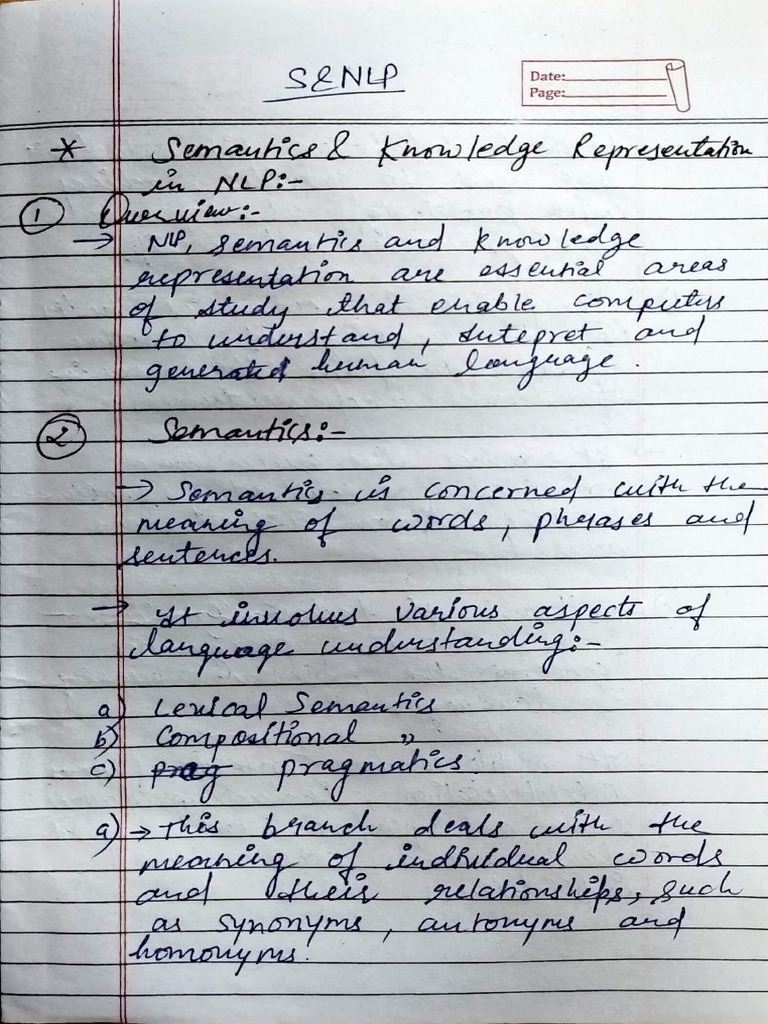 S&NLP
Date:
Page:
* Semantics & Knowledge Representation
in NLP:-
① Overview:-
→ NLP, semantics and knowledge
representation are essential areas
of study that enable computers
to understand, intepret and
generated human language.
② Semantics:-
→ Semantics is concerned with the
meaning of words, phrases and
sentences.
→ It involves various aspects of
language understanding:-
a) Lexical Semantics
b) Compositional "
c) prag pragmatics.
a) → This branch deals with the
meaning of individual words
and their relationships, such
as synonyms, antonyms and
homonyms.